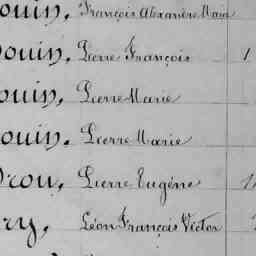 ouin, François Alexandre Marie
ouin, Pierre François 1
ouin, Pierre Marie
ouin, Pierre Marie
rou, Pierre Eugène
ry, Léon François Victor